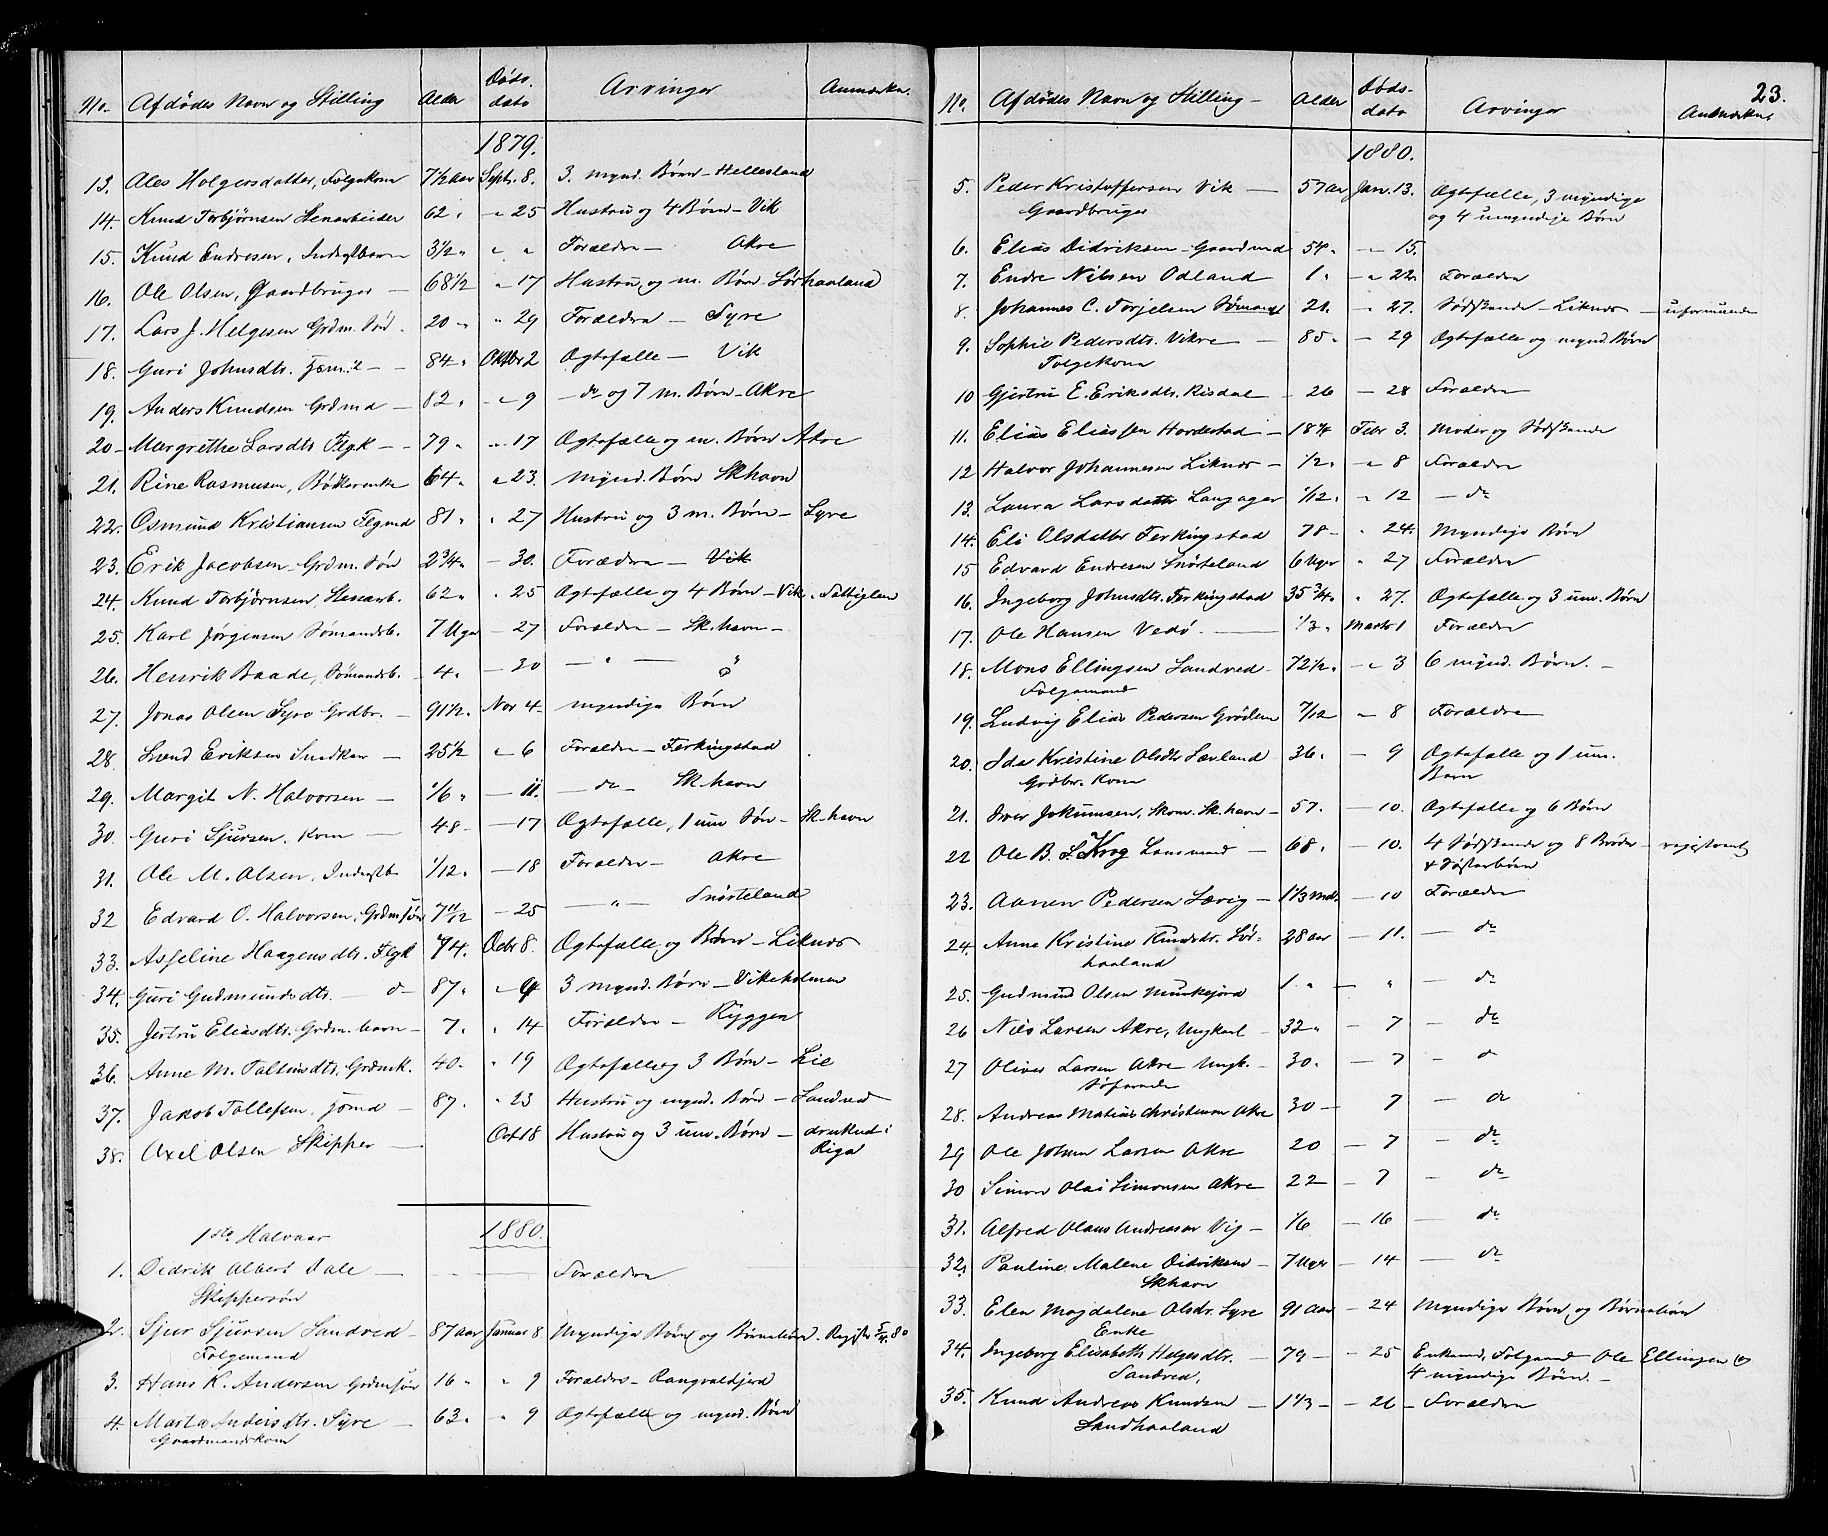 No. Afdødes Navn og Stilling Alder Døds-dato Arvinger Anmærkn.
1879.
13. Ales Holgersdatter, Folgekone 71½ Aar Septr. 8. 3. mynd. Børn - Hellesland
14. Knud Torbjørnsen Stenarbeider 62 " " 25 Hustru og 4 Børn - Vik
15. Knud Endresen, Inderstbarn 3½ " " " Forældre - Akre
16. Ole Olsen, Gaardbruger - 68½ " 17 Hustru og m. Børn Sørhaaland
17. Lars J. Helgesen Grdm. Søn . 20 " " 29 Forældre - Syre
18. Guri Johnsdtr. - - 84 " Oktbr 2 Ægtefælle - Vik
19. Anders Knudsen Grdmd - 82 " " 9 - do og 7 m. Børn - Akre
20 - Margrethe Larsdtr Flgk - - 79 " " 17 Ægtefælle og m. Børn Akre
21. Rine Rasmusen, Bødkerenke 64 " " 23. mynd. Børn Skhavn
22. Osmund Kristiansen Flgmd 81 " " 27 Hustru og 3 m. Børn - Syre
23. Erik Jacobsen - Grdm. Søn 2¾ " - 30. Forældre - Vik
24. Knud Torbjørnsen, Stenarb. 62 " " 25 Ægtefælle og 4 Børn - Vik. Fattiglem
25. Karl Jørgensen Sømandsb. 7 Uger - 27 Forældre - Sk.havn -
26. Henrik Baade, Sømandsb. 4. - 30 - " - "
27. Jonas Olsen Syre Grdbr. - 91½ " Nov 4 - myndige Børn
28. Svend Eriksen Snedker - 25½ " 6 Forældre - Ferkingstad
29. Margit N. Halvorsen - 1/6 " - 11. - do - Sk.havn
30. Guri Sjursen, Kone - 48 - - 17 Ægtefælle, 1 um Søn - Sk.havn
31. Ole M. Olsen, Inderstb 1/12 " - 18 Forældre - Akre
32 Edvard O. Halvorsen, Grdmsøn 7 11/12 - 25 - " - Snørteland
33. Asseline Haagensdtr. Flgk 74. Ocbr 8. Ægtefælle og Børn - Liknes
34. Guri Gudmundsdtr. - do 87 " " 9 3 mynd. Børn - Vikeholmen
35. Jertru Eliasdtr. Grdm. barn - 7 " " 14 Forældre - Ryggen
36. Anne M. Tallinsdtr. Grdmk. 40. " 19 Ægtefælle og 3 Børn - Lie
37. Jakob Tollefsen, - 87. " 23 Hustru og mynd. Børn - Sandved
38. Axel Olsen Skipper - Octb 8 Hustru og 3 um. Børn - druknet i Riga
1ste Halvaar 1880.
1. Didrik Albert Dale - Forældre
Skippersøn
2. Sjur Sjursen Sandved - 87 aar Januar 8 Myndige Børn og Børnebørn. Regist 5/4. 80
Folgemand
3. Hans K. Andersen Grdmsøn 16 " " 9 Forældre - Rangvaldjord
4. Marta Andersdtr. Syre - 63 " " 9 Ægtefælle og mynd. Børn
Gaardmandskone
23.
No. Afdødes Navn og Stilling - Alder Døds-dato Arvinger Anmærkn.
1880.
5. Peder Kristoffersen Vik - 57 aar Jan. 13. Ægtefælle, 3 myndige
Gaardbruger og 4 umyndige Børn
6. Elias Didriksen - Gaardmd 54 " - 15.
7. Endre Nilsen Odland 1 " - " 22 Forældre
8. Johannes C. Torjelsen Sømand 21. " 27. Sødskende - Liknes - uformuende
9. Sophie Pedersdtr. Vikre - 85 " - 29 Ægtefælle og mynd. Børn
Folgekone
10 Gjertru E. Eriksdtr. Risdal - 26 - 28 Forældre
11. Elias Eliassen Hordestad - 18¼ Febr 3. Moder og Sødskende
12 Halvor Johannesen Liknes - 1/2 " " 8 Forældre
13. Laura Larsdatter Langager 1/12 " " 12 - do
14. Eli Olsdatter Ferkingstad 78 - " 24. Myndige Børn
15 Edvard Endresen Snørteland 6 Uger " 27 Forældre
16. Ingeborg Johnsdtr. Ferkingstad 35¾ " " 27. Ægtefælle og 3 um. Børn
17. Ole Hansen Vedø. - 1/3 " Marts 1 Forældre
18. Mons Ellingsen Sandved - 72½ " - " 3 6 mynd. Børn. -
Folgemand
19. Ludvig Elias Pedersen Grødem 7/12 - 8 Forældre
20. Ida Kristine Olsdtr Sævland 36. - 9 Ægtefælle og 1 um.
Grdbr. Kone Barn
21. Iver Jokumsen, Skom. Sk.havn - 57. - 10. Ægtefælle og 6 Børn
22 Ole B. S. Krog Lensmand - 68. - 10. 4 Sødskende og 8 Broder - registreret
& Søsterbørn
23. Aanen Pedersen Sævig - 1⅓ Mdr. - 10 Forældre
24. Anne Kristine Knudsdtr. Sør- 28 aar - 11. - do
haaland
25. Gudmund Olsen Munkejord 1. " - " - do
26 Nils Larsen Akre, Ungkarl - 32 " - 7 - do
27 Oliver Larsen Akre Ungk. - 30. - 7 - do
Søfarende
28. Andreas Matias Christensen Akre 30 - 7 - do
29 Ole Johan Larsen Akre 20 - 7 - do
30 Simon Olai Simonsen Akre - 22 - 7 - do
31. Alfred Olaus Andreasen Vig - 1/6 - 16 - do
32. Pauline Malene Didriksen - 7 Uger - 14 - do
Skhavn
33. Elen Magdalene Olsdr. Syre 91 Aar - 24 Myndige Børn og Børnebørn
Enke
34. Ingeborg Elisabeth Helgesdtr. - 79 - - 25 Enkemd, Folgemd Ole Ellingsen og
Sandved, 4 myndige Børn. -
35. Knud Andreas Knudsen - 1⅓ - - 26 - Forældre
Sandhaaland